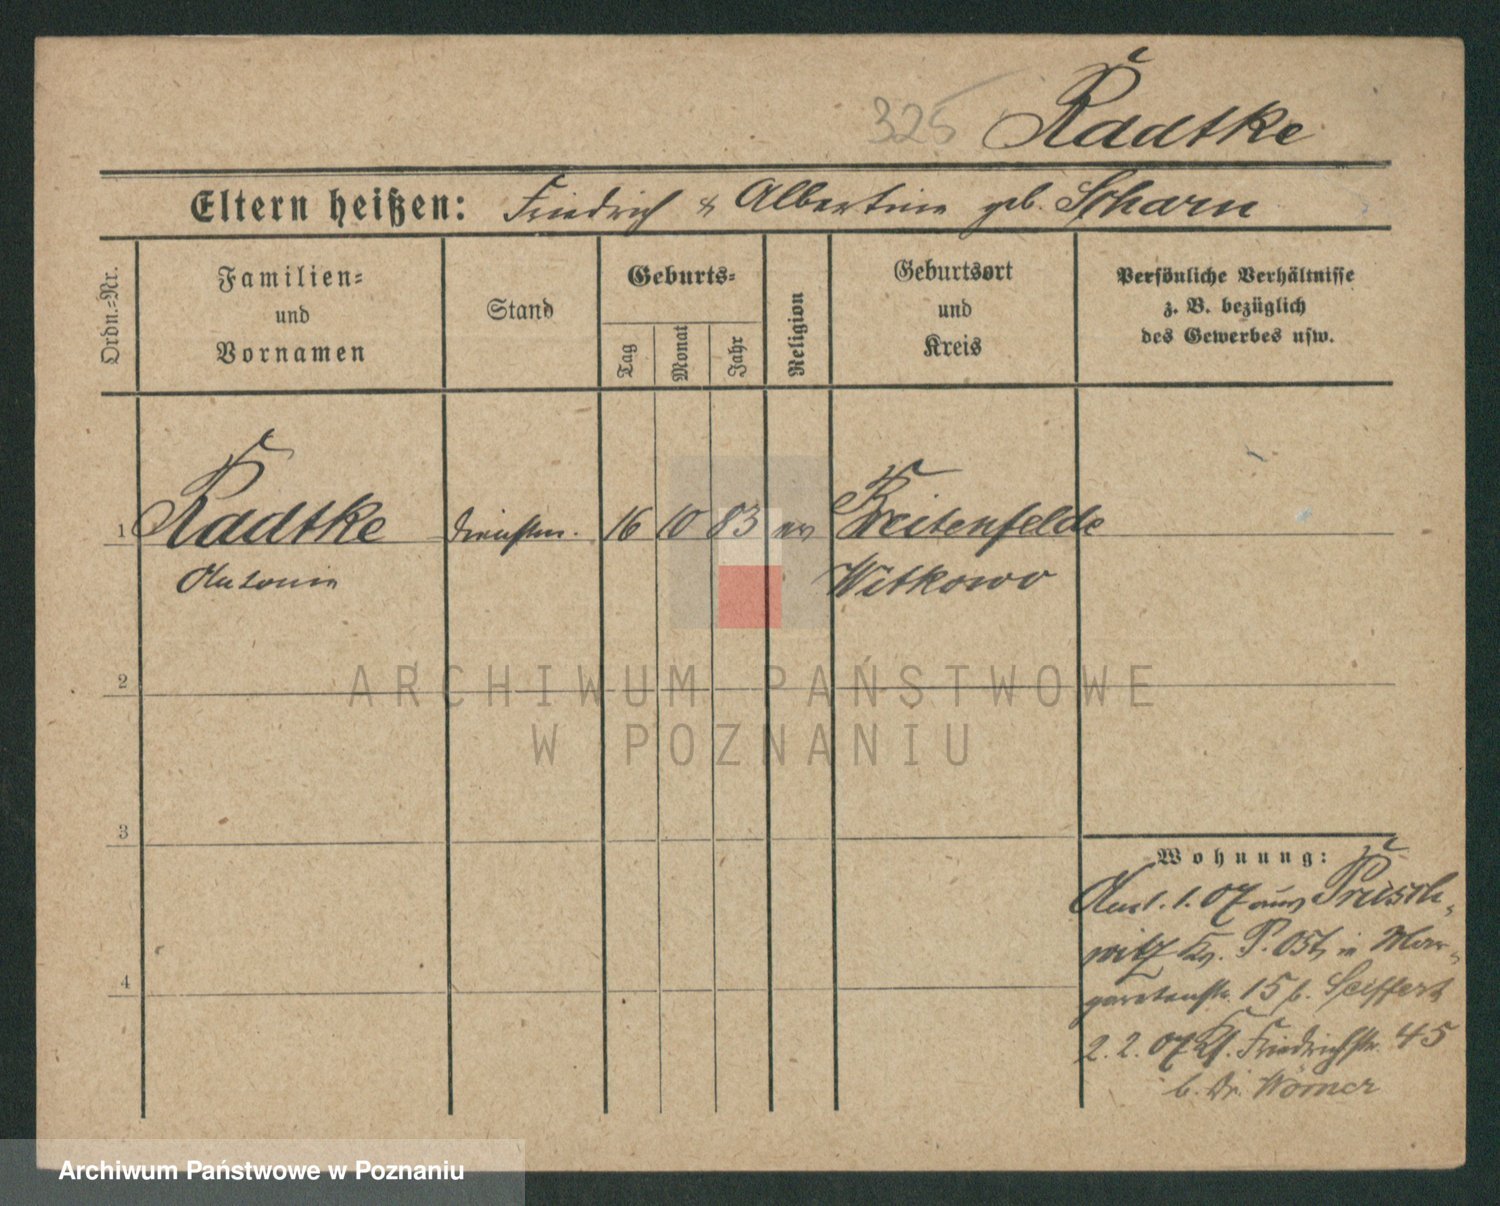 325 Radtke
Eltern heißen: Friedrich & Albertine geb. Scharn
Ordn.=Nr.
Familien=
und
Vornamen
Stand
Geburts=
Tag
Monat
Jahr
Religion
Geburtsort
und
Kreis
Persönliche Verhältnisse
z. B. bezüglich
des Gewerbes usw.
1 Radtke dienstm. 16 10 83 ev Breitenfelde
Antonie Witkowo
2
3
4
Wohnung:
1. 07 aus
witz Kr. P. Ost, in Mar-
garetenstr. 15 b. Seiffert
2. 2. 07 Friedrichstr. 45
b. Dr. Wörner
ARCHIWUM PAŃSTWOWE
W POZNANIU
Archiwum Państwowe w Poznaniu